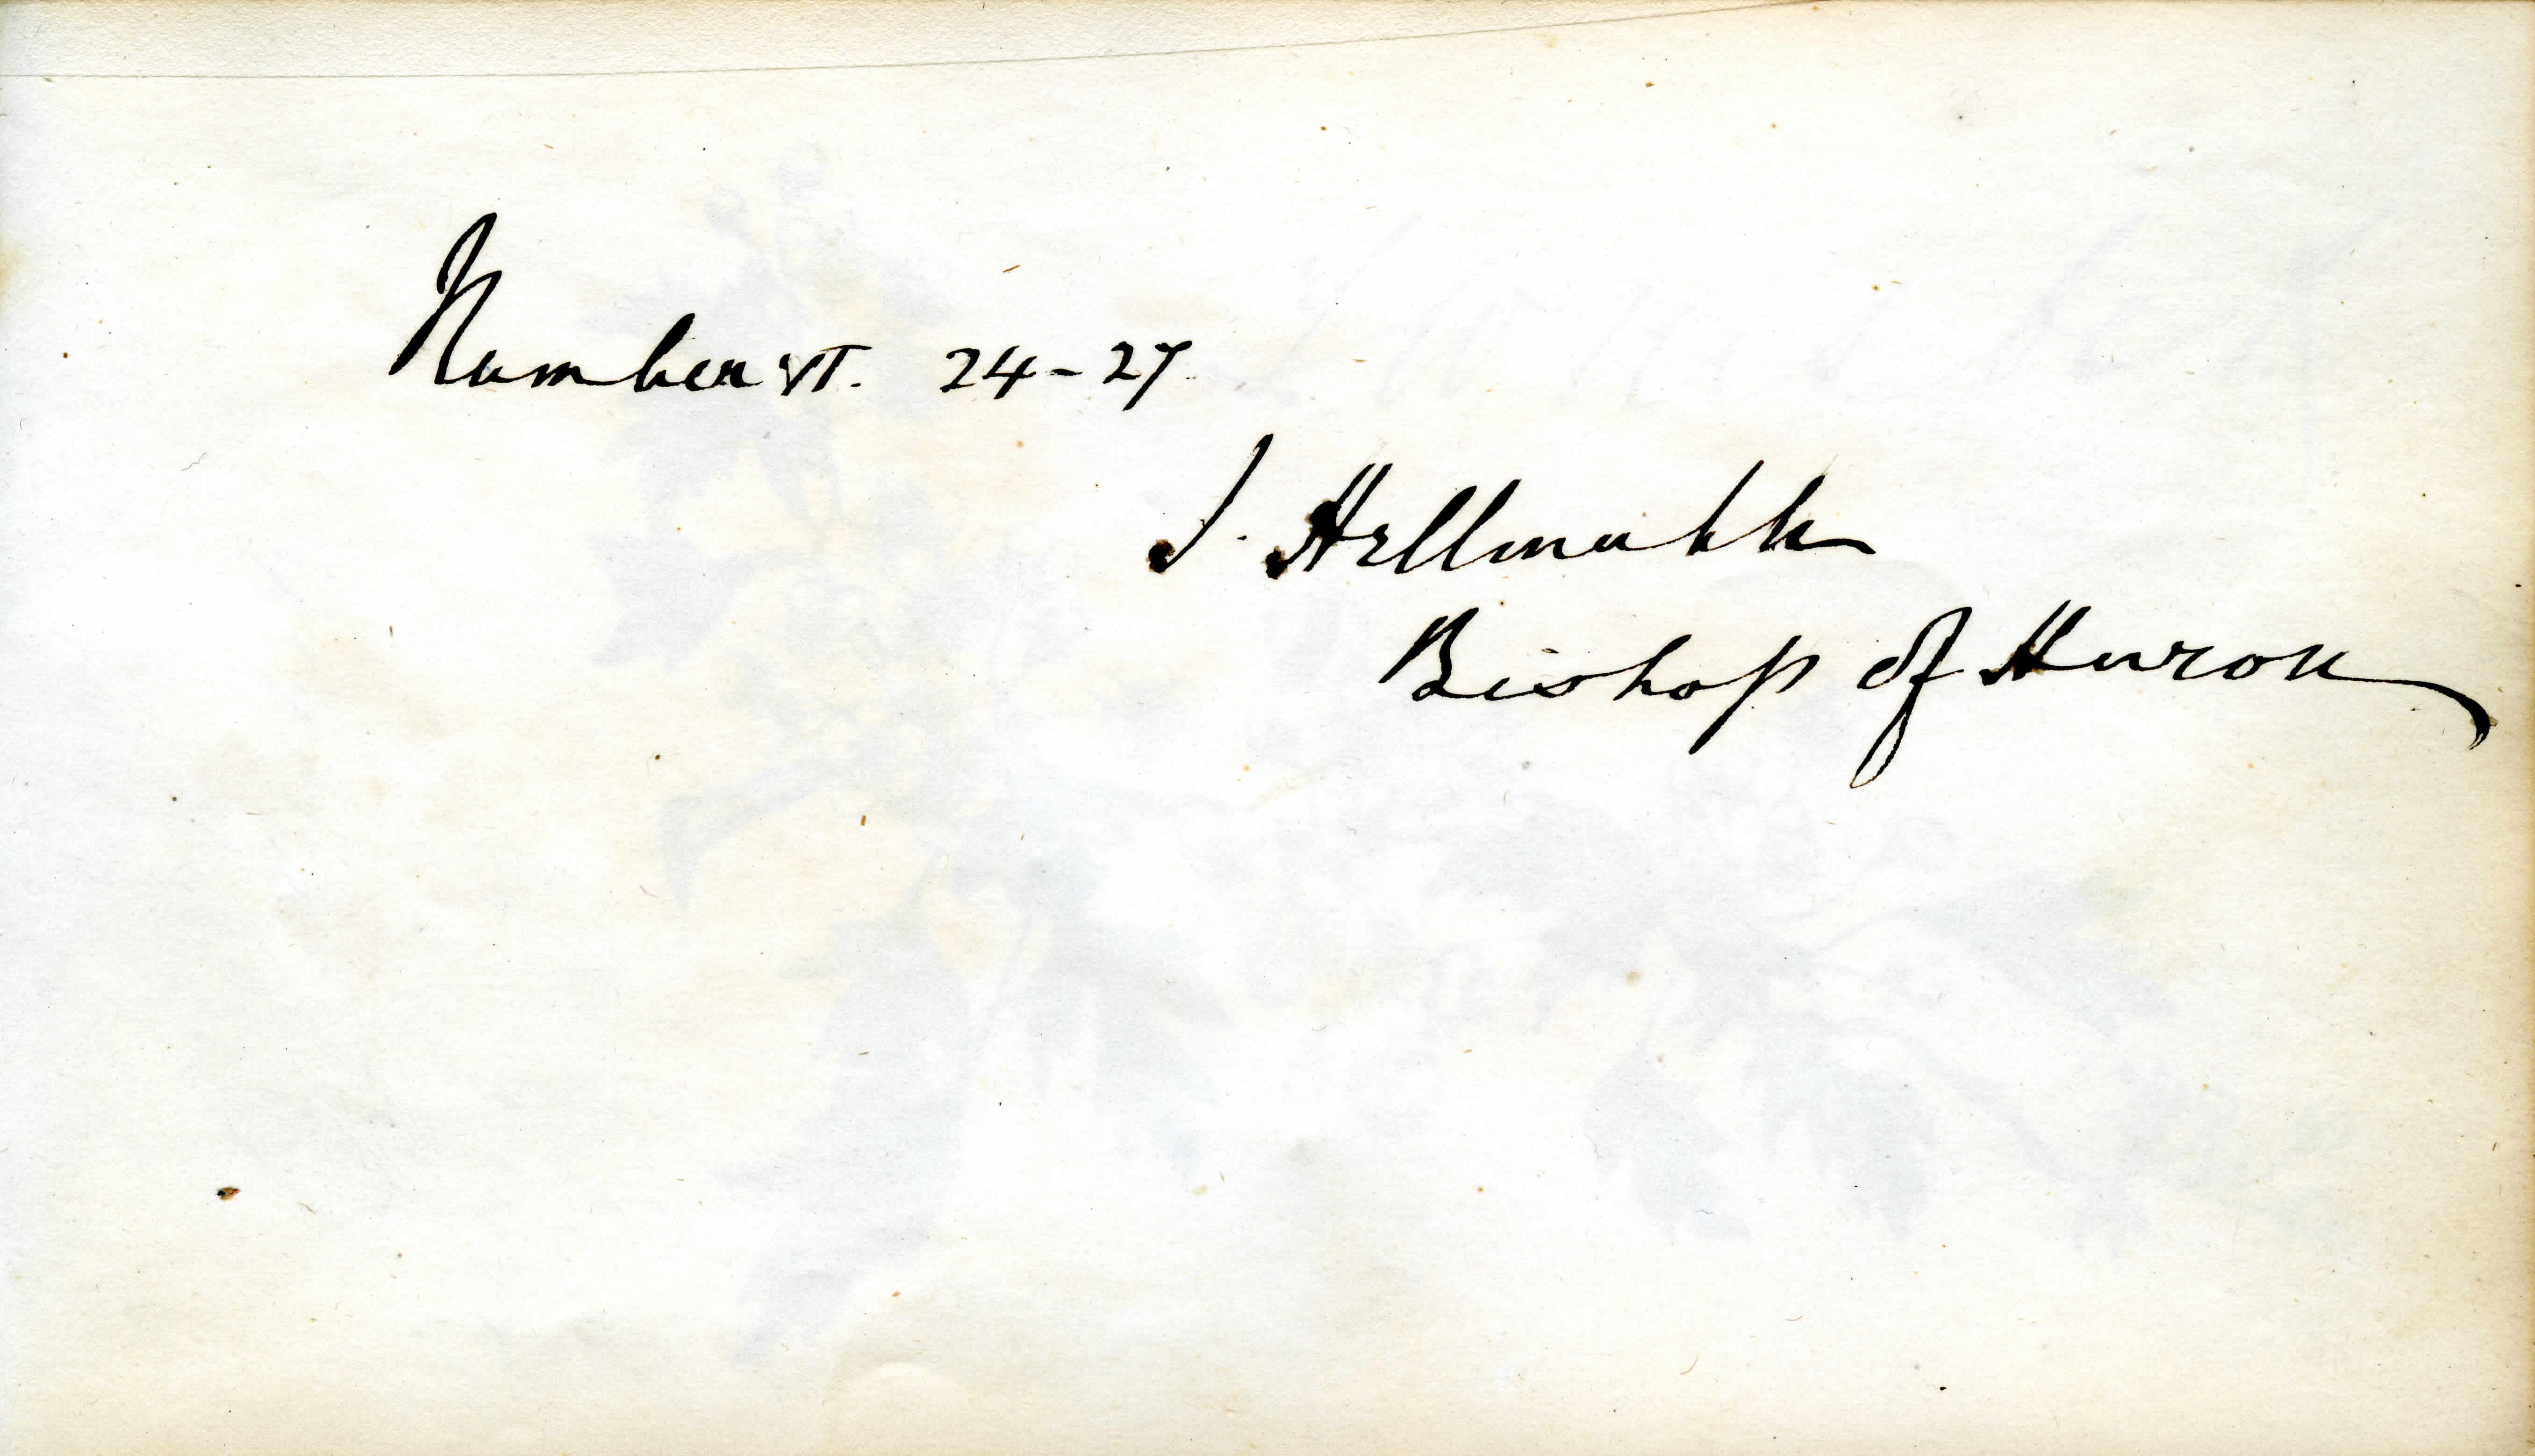 Numbers VI. 24-27
I. Hellmuth
Bishop of Huron